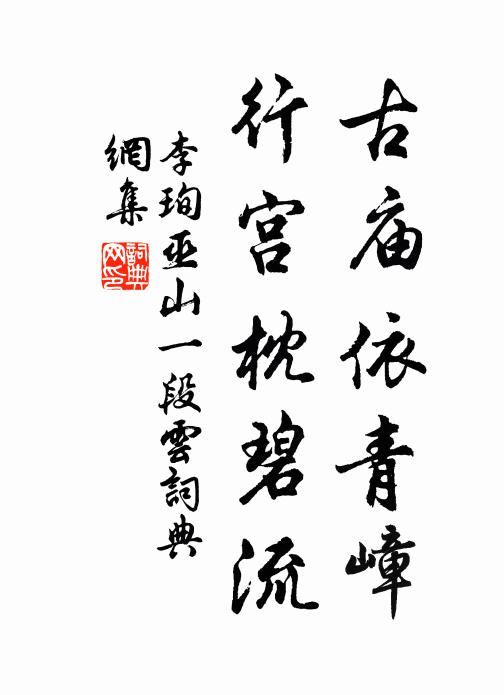 古庙依青嶂
行宫枕碧流
李珣巫山一段雲詞典
網集
詞典
网印